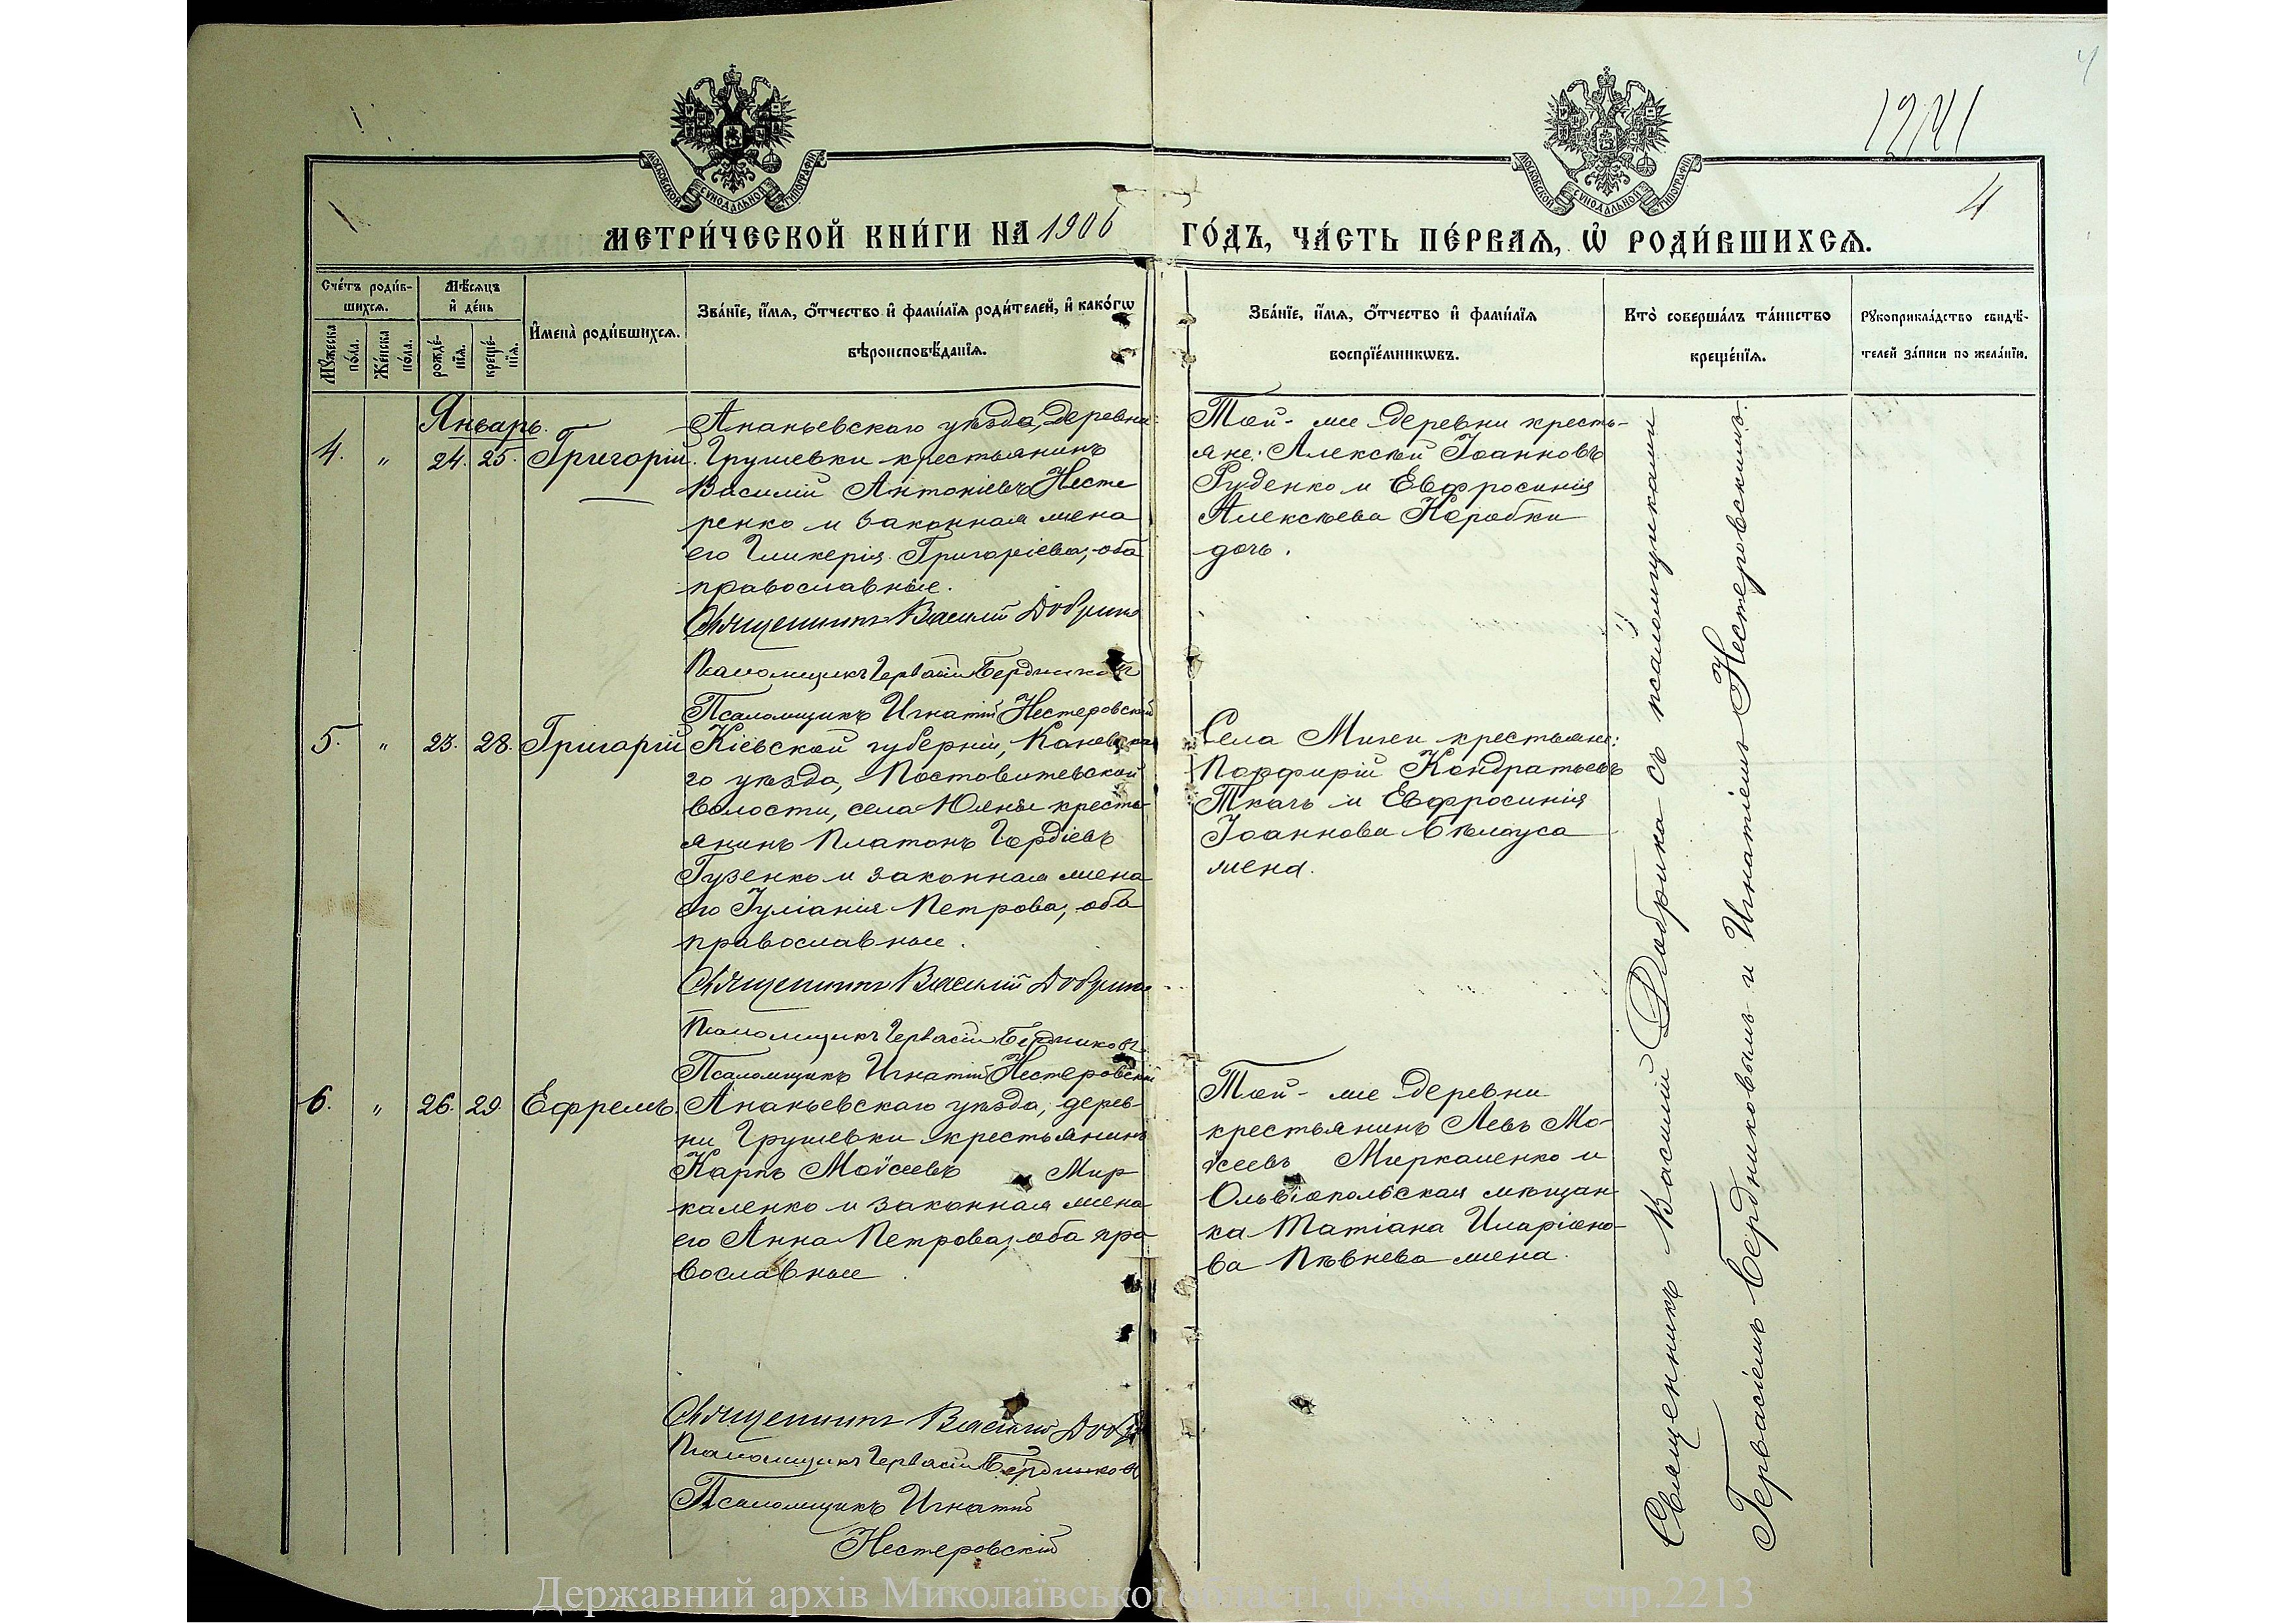 1241
4
4
МОСКОВСКОЙ СѴНОДАЛЬНОЙ ТИПОГРАФІИ
МОСКОВСКОЙ СѴНОДАЛЬНОЙ ТИПОГРАФІИ
МЕТРИ́ЧЕСКОЙ КНИ́ГИ НА 1906 ГО́ДЪ, ЧА́СТЬ ПЕ́РВАѦ, Ѽ РОДИ́ВШИХСѦ.
Сче́тъ роди́в-
шихсѧ.
Мꙋ́жеска по́ла.
Же́нска по́ла.
Мѣ́сѧцъ
и҆ де́нь
рожде́-нїѧ.
креще́-нїѧ.
И҆мена̀ роди́вшихсѧ.
Зва́нїе, и҆́мѧ, ѻ҆́тчество и҆ фами́лїѧ роди́телей, и҆ како́гѡ
вѣроисповѣ́данїѧ.
Зва́нїе, и҆́мѧ, ѻ҆́тчество и҆ фами́лїѧ
воспрїе́мникѡвъ.
Кто̀ соверша́лъ та́инство
креще́нїѧ.
Рꙋкоприкла́дство свидѣ́-
телей за́писи по жела́нїю.
Январь.
4. " 24. 25. Григорій.
Ананьевскаго уѣзда, деревни
Грушевки крестьянинъ
Василій Антоніевъ Несте
ренко и законная жена
его Гликерія Григоріева, оба
православные.
Священникъ Василій Добрика
Псаломщикъ Гервасій Бердниковъ
Псаломщикъ Игнатій Нестеровскій
Той-же деревни кресть-
яне: Алексѣй Іоанновъ
Руденко и Евфросинія
Алексѣева Коробки
дочь.
5. " 23. 28. Григорій
Кіевской губерніи, Каневска
го уѣзда,
волости, села Юхны кресть-
янинъ Платонъ Гордіевъ
Гузенко и законная жена
его Іуліанія Петрова, оба
православные.
Священникъ Василій Добрика
Псаломщикъ Гервасій Бердниковъ
Псаломщикъ Игнатій Нестеровскій
Села Мигеи крестьяне:
Порфирій Кондратьевъ
Ткачъ и Евфросинія
Іоаннова Бѣлоуса
жена.
6. " 26. 29. Ефремъ.
Ананьевскаго уѣзда, дерев-
ни Грушевки крестьянинъ
Карпъ Моѵсеевъ Мир
каленко и законная жена
его Анна Петрова, оба пра
вославные.
Священникъ Василій Добрика
Псаломщикъ Гервасій Бердниковъ
Псаломщикъ Игнатій
Нестеровскій
Той-же деревни
крестьянинъ Левъ Мо-
ѵсеевъ Миркаленко и
Ольвіопольская мѣщан
ка Татіана Иларіоно-
ва Пѣвнева жена.
Священникъ Василій Добрика съ псаломщиками
Гервасіемъ Бердниковымъ и Игнатіемъ Нестеровскимъ.
Державний архів Миколаївської області, ф.484, оп.1, спр.2213